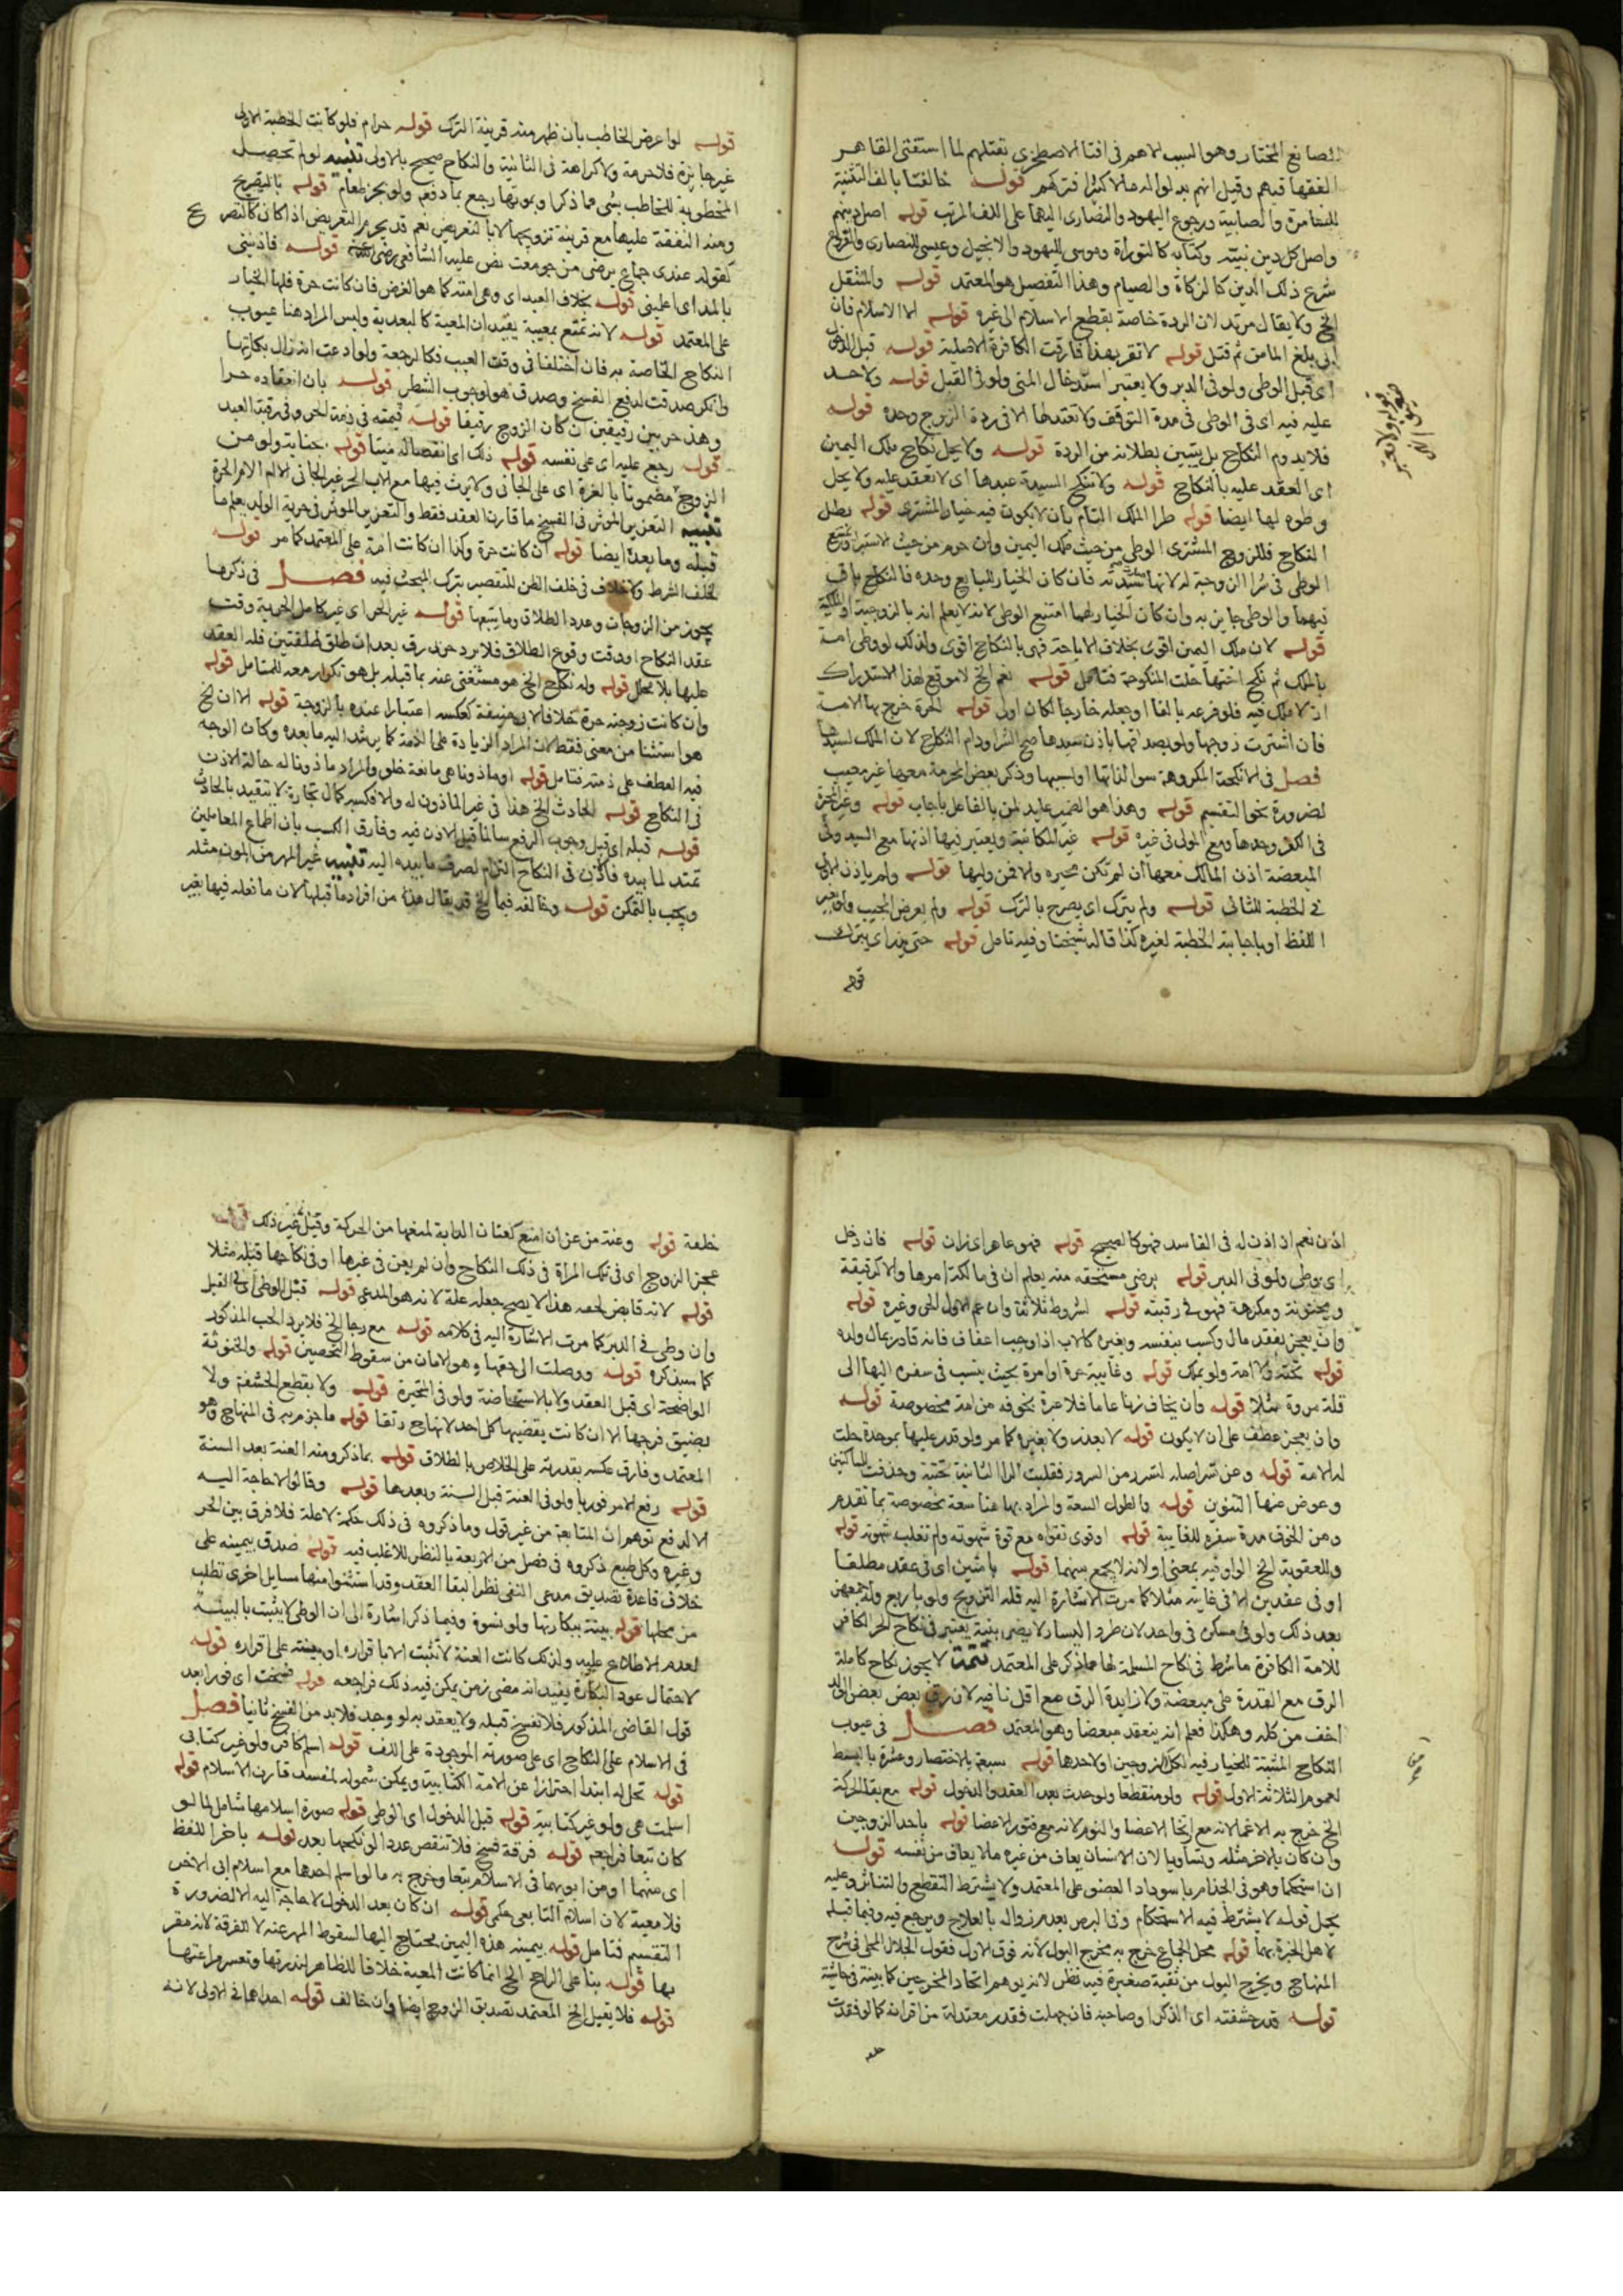 الصانع المختار وهو السبب الاهم في افتا الاصطخري بقتلهم لما استفتى القاهر
الفقها فيهم وقيل انهم بذلوا له مالا كثيرا فتركهم قوله خالفتا بالف التثنية
للسامرة والصابية ورجوع اليهود والنصارى اليهما على اللف المرتب قوله اصل دينهم
واصل كل دين نبيه وكتابه كالتوراة وموسى لليهود والانجيل وعيسى للنصارى
شرع ذلك الدين كالزكاة والصيام وهذا التفصيل هو المعتمد قوله والمنتقل
الخ ولا يقال مرتد لان الردة خاصة بقطع الاسلام الى غيره قوله الا الاسلام فان
ابى بلغ المامن ثم قتل قوله لا تقر بهذا فارقت الكافرة الاصلية قوله قبل الدخول
اى قبل الوطى ولو فى الدبر ولا يعتبر استدخال المنى ولو فى القبل قوله ولا حد
عليه فيه اى فى الوطى فى مدة التوقف ولا تعتد لها الا فى ردة الزوج وحده قوله
فلا يدوم النكاح بل يتبين بطلانه من الردة قوله ولا يحل نكاح ملك اليمين
اى العقد عليه بالنكاح قوله ولا تنكح السيدة عبدها اى لا تعقد عليه ولا يحل
وطوه لها ايضا قوله طرا الملك التام بان لا يكون فيه خيار للمشترى قوله بطل
النكاح فللزوج المشترى الوطى من حيث ملك اليمين وان حرم من حيث الاستبرا
الوطى فى شرا الزوجة له لانها فان كان الخيار للبايع وحده فالنكاح باق
فيهما والوطى جايز به وان كان الخيار لهما امتنع الوطى لانه لا يعلم انه بالزوجية او الملكية
قوله لان ملك اليمين اقوى بخلاف الاباحة فهى بالنكاح اقوى ولذلك لو وطى امة
بالملك ثم نكح اختها حلت المنكوحة فتامل قوله نعم الخ لا موقع لهذا الاستدراك
اذ لا ملك فيه فلو فرعه بالفا او جعله خارجا لكان اولى قوله الحرة خرج بها الامة
فان اشترت زوجها ولو بصداقها باذن سيدها صح الشرا ودام النكاح لان الملك لسيدها
فصل فى الانكحة المكروهة سوا لذاتها او لسببها وذكر بعض المحرمة معها غير معيب
لضرورة نحو التقسيم قوله وهذا هو الضمير عايد لمن بالفاعل باجاب قوله وغير المجبرة
فى الكفو وحدها ومع الولى فى غيره قوله غير المكاتبة ويعتبر فيها اذنها مع السيد وفى
المبعضة اذن المالك معها ان لم تكن مجبرة والا فمن وليها قوله ولم ياذن الاول
فى الخطبة للثانى قوله ولم يترك اى يصرح بالترك قوله ولم يعرض المجيب
اللفظ او باجابة الخطبة لغيره كذا قاله شيخنا وفيه تامل قوله حتى يذر اى يترك
قوله
قوله لو اعرض الخاطب بان ظهر منه قرينة الترك قوله حرام فلو كانت الخطبة الاولى
غير جايزة فلا حرمة ولا كراهة فى الثانية والنكاح صحيح بالاولى تنبيه لو لم تحصل
المخطوبة للخاطب بشى مما ذكر او بموتها رجع بما دفع ولو نحو طعام قوله بالتصريح
ومنه النفقة عليها مع قرينة تزويجها لا بالتعريض نعم قد يحرم التعريض اذا كان كالتصريح
كقوله عندى جماع يرضى من جومعت نص عليه الشافعى رضى الله عنه قوله فاذنينى
بالمد اى اعلمينى قوله بخلاف العبد اى وهى امته كما هو الفرض فان كانت حرة فلها الخيار
على المعتمد قوله لانه تمتع بمعيبة يفيد ان المعية كالبعدية وليس المراد هنا عيوب
النكاح الخاصة به فان اختلفا فى وقت العيب فكالرجعة ولو ادعت انه زال بكارتها
وانكر صدقت لدفع الفسخ وصدق هو لوجوب الشطر قوله بان انعقاده حرا
وهذ حر بين رقيقين ان كان الزوج رقيقا قوله قيمته فى ذمة الحر وفى رقبة العبد
قوله رجع عليه اى على نفسه قوله ذلك اى انفصاله ميتا قوله بجناية ولو من
الزوج مضمونا بالغرة اى على الجانى ولا يرث فيها مع الاب الحر غير الجانى الا ام الام الحرة
تنبيه التغرير الموثر فى الفسخ ما قارن العقد فقط والتغرير الموثر فى حرية الولد يعلم ما
قبله وما بعده ايضا قوله ان كانت حرة وكذا ان كانت امة على المعتمد كما مر قوله
لخلف الشرط ولا خلاف فى خلف الظن للتقصير بترك البحث فيه فصل فى ذكر ما
يجوز من الزوجات وعدد الطلاق وما يتبعها قوله غير الحر اى غير كامل الحرية وقت
عقد النكاح او وقت وقوع الطلاق فلا يرد حر ذمى رق بعد ان طلق طلقتين فله العقد
عليها بلا محلل قوله وله نكاح الخ هو مستغنى عنه بما قبله بل هو تكرار معه للمتامل قوله
وان كانت زوجته حرة خلافا لابى حنيفة كعكسه اعتبارا عنده بالزوجة قوله الا ان نكح
هو استثنا من معنى فقط لان المراد الزيادة على الامة كما يرشد اليه ما بعده وكان الوجه
فيه العطف على ذمته فتامل قوله او ماذونا هى مانعة خلو والمراد ماذونا له حالة الاذن
فى النكاح قوله الحادث الخ هذا فى غير الماذون له والا فكسبه كمال تجارة لا يتقيد بالحادث
قوله قبله اى قبل وجوب الدفع سالما قبل الاذن فيه وفارق الكسب بان اطماع المعاملين
تمتد لما بيده فالاذن فى النكاح التزام لصرف ما بيده اليه تنبيه غير المهر من المون مثله
ويجب بالتمكن قوله وخالفه فيما الخ قد يقال هذه من افراد ما قبلها لان ما فعله فيها بغير
اذن نعم ان اذن له فى الفاسد فهو كالصحيح قوله فهو عاهر اى زان قوله فان دخل
اى وطى ولو فى الدبر قوله برضى مستحقه منه يعلم ان فى مالكة امرها والا كرقيقة
ومجنونة ومكرهة فهو فى رقبته قوله لشروط ثلاثة وان عم الاول للحر وغيره قوله
وان يعجز بفقد مال وكسب بنفسه وبغيره كالاب اذا وجب اعفاف فانه قادر بمال ولده
قوله تحته ولا امة ولو بملك قوله وغايبة حرة او امة بحيث ينسب فى سفره اليها الى
قلة مروة مثلا قوله وان يخاف زنا عاما فلا عبرة بخوفه من امة مخصوصة قوله
وان يعجز عطف على ان لا يكون قوله لا بعذر ولا بغيره كما مر ولو قدر عليها بموحدة حلت
له الامة قوله وعن تسر اصله تسرر من السرور فقلبت الرا الثانية تحتية وحذفت للساكنين
وعوض عنها التنوين قوله والطول السعة والمراد بها هنا سعة مخصوصة بما تقدم
ومن الخوف مدة سفره للغايبة قوله او قوى تقواه مع قوة شهوته ولم تغلب شهوته قوله
وللعقوبة الخ الواو فيه بمعنى او لانه لا يجمع بينهما قوله بامتين اى فى عقد مطلقا
او فى عقدين الا فى غايته مثلا كما مرت الاشارة اليه فله التزويج ولو باربع وله جمعهن
بعد ذلك ولو فى مسكن واحد لان طرو اليسار لا يضر يعتبر فى نكاح الحر الكافر
للامة الكافرة ما شرط فى نكاح المسلمة لها مما ذكر على المعتمد تتمة لا يجوز نكاح كاملة
الرق مع القدرة على مبعضة ولا زايدة الرق مع اقل منها فيه لان رق بعض بعض الولد
اخف من كله وهكذا فعلم انه ينعقد مبعضا وهو المعتمد فصل فى عيوب
النكاح المثبتة للخيار فيه لكل الزوجين او لاحدهما قوله سبعة بالاختصار وعشرة بالبسط
لعموم الثلاثة الاول قوله ولو منقطعا ولو حدث بعد العقد والدخول قوله مع بقا الحركة
الخ خرج به الاغما لانه مع ارتخا الاعضا والنوم لانه مع فتور الاعضا قوله باحد الزوجين
وان كان بالاخر مثله وتساويا لان الانسان يعاف من غيره ما لا يعاف من نفسه قوله
ان استحكما وهو فى الجذام باسوداد العضو على المعتمد ولا يشترط التقطع والتناثر وعليه
يحمل قوله لا يشترط فيه الاستحكام وفى البرص بعدم زواله بالعلاج ويرجع فيه وفيما قبله
لاهل الخبرة بهما قوله محل الجماع خرج به مخرج البول لانه فوق الاول فقول الجلال المحلى فى شرح
المنهاج ويخرج البول من ثقبة صغيرة فيه نظر لانه يوهم اتحاد المخرجين كما بينته فى حاشيته
قوله قدر حشفته اى الذكر او صاحبه فان جهلت فقدر معتدلة من اقرانه كما لو فقدت
خلقة
خلقة قوله وعنة من عن ان امتنع كعنان الدابة لمنعها من الحركة وقيل غير ذلك قوله
عجز الزوج اى فى تلك المراة فى ذلك النكاح وان لم يعن فى غيرها او فى نكاحها قبله مثلا
قوله لانه قابض لحقه هذا لا يصح جعله علة لانه هو المدعى قوله قبل الوطى اى فى القبل
وان وطى فى الدبر كما مرت الاشارة اليه فى كلامه قوله مع رجا الخ فلا يرد الجب المذكور
كما سيذكره قوله ووصلت الى حقها وهو الامان من سقوط التحصين قوله والخنوثة
الواضحة اى قبل العقد ولا بالاستحاضة ولو فى المتحيرة قوله ولا بقطع الحشفة ولا
بضيق فرجها الا ان كانت يفضيها كل احد لانها مع رتقا قوله ما جزم به فى المنهاج وهو
المعتمد وفارق عكسه بقدرته على الخلاص بالطلاق قوله بما ذكر ومنه العنة بعد السنة
قوله رفع الامر فوريا ولو فى العنة قبل السنة وبعدها قوله وقالوا لا حاجة اليه
الا لدفع توهم ان المتابعة من غير قول وما ذكروه فى ذلك حكمة لا علة فلا فرق بين الحر
وغيره وكل طبع ذكروه فى فصل من الاربعة بالنظر للاغلب فيه قوله صدق بيمينه على
خلاف قاعدة تصديق مدعى النفى نظرا لبقا العقد وقد استثنوا منها مسايل اخرى تطلب
من محلها قوله بينة ببكارتها ولو نسوة وفيما ذكر اشارة الى ان الوطى لا يثبت بالبينة
لعدم الاطلاع عليه ولذلك كانت العنة لا تثبت الا باقراره او ببينة على اقراره قوله
لاحتمال عود البكارة يفيد انه مضى زمن يمكن فيه ذلك فراجعه قوله فسخت اى فورا بعد
قول القاضى المذكور فلا تفسخ قبله ولا يعتد به لو وجد فلا بد من الفسخ ثانيا فصل
فى الاسلام على النكاح اى على صورته الموجودة على اللف قوله اسلم كافر ولو غير كتابى
قوله تحل له ابتدا احترازا عن الامة الكتابية ويمكن شموله لمفسد قارن الاسلام قوله
اسلمت هى ولو غير كتابية قوله قبل الدخول اى الوطى قوله صورة اسلامها شامل لما لو
كان تبعا فراجعه قوله فرقة فسخ فلا تنقص عددا لو نكحها بعد قوله باخر اللفظ
اى منهما او من ابويهما فى الاسلام تبعا وخرج به ما لو اسلم احدهما مع اسلام ابى الاخر
فلا معية لان اسلام التابعى حكمى قوله ان كان بعد الدخول لا حاجة اليه الا لضرورة
التقسيم فتامل قوله بيمينه هذه اليمين يحتاج اليها لسقوط المهر عنه لا للفرقة لانه مقر
بها قوله بنا على الراجح الخ انما كانت المعية خلافا للظاهر لندرتها وتعسر مراعتها
قوله فلا يقبل الخ المعتمد تصديق الزوج ايضا وان خالف قوله احداهما فى الاولى لانه